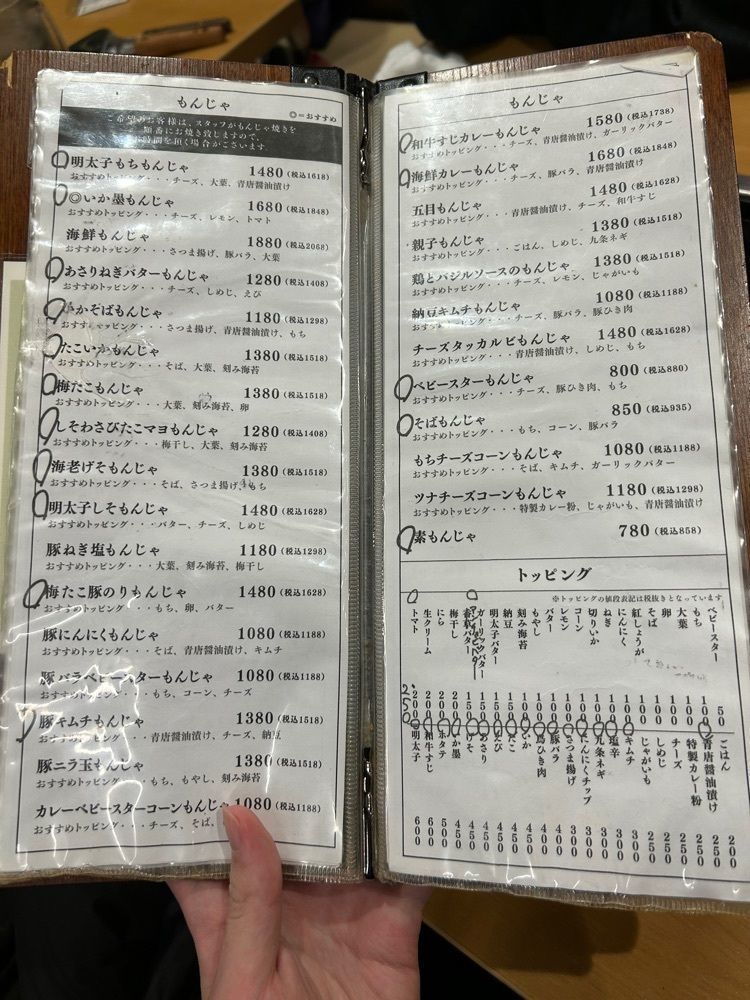 もんじゃ
◎＝おすすめ
ご希望のお客様は、スタッフがもんじゃ焼きを
順番にお焼き致しますので、
お時間を頂く場合がございます。
明太子もちもんじゃ 1480(税込1618)
おすすめトッピング・・・チーズ、大葉、青唐醤油漬け
◎いか墨もんじゃ 1680(税込1848)
おすすめトッピング・・・チーズ、レモン、トマト
海鮮もんじゃ 1880(税込2068)
おすすめトッピング・・・さつま揚げ、豚バラ、大葉
あさりねぎバターもんじゃ 1280(税込1408)
おすすめトッピング・・・チーズ、しめじ、えび
いかそばもんじゃ 1180(税込1298)
おすすめトッピング・・・さつま揚げ、青唐醤油漬け、もち
たこいかもんじゃ 1380(税込1518)
おすすめトッピング・・・そば、大葉、刻み海苔
梅たこもんじゃ 1380(税込1518)
おすすめトッピング・・・大葉、刻み海苔、卵
しそわさびたこマヨもんじゃ 1280(税込1408)
おすすめトッピング・・・梅干し、大葉、刻み海苔
海老げそもんじゃ 1380(税込1518)
おすすめトッピング・・・そば、さつま揚げ、もち
明太子しそもんじゃ 1480(税込1628)
おすすめトッピング・・・バター、チーズ、しめじ
豚ねぎ塩もんじゃ 1180(税込1298)
おすすめトッピング・・・大葉、刻み海苔、梅干し
梅たこ豚のりもんじゃ 1480(税込1628)
おすすめトッピング・・・もち、卵、バター
豚にんにくもんじゃ 1080(税込1188)
おすすめトッピング・・・そば、青唐醤油漬け、キムチ
豚バラベビースターもんじゃ 1080(税込1188)
おすすめトッピング・・・もち、コーン、チーズ
豚キムチもんじゃ 1380(税込1518)
おすすめトッピング・・・青唐醤油漬け、チーズ、納豆
豚ニラ玉もんじゃ 1380(税込1518)
おすすめトッピング・・・もち、もやし、刻み海苔
カレーベビースターコーンもんじゃ 1080(税込1188)
おすすめトッピング・・・チーズ、そば、
もんじゃ
和牛すじカレーもんじゃ 1580(税込1738)
おすすめトッピング・・・チーズ、青唐醤油漬け、ガーリックバター
海鮮カレーもんじゃ 1680(税込1848)
おすすめトッピング・・・チーズ、豚バラ、青唐醤油漬け
五目もんじゃ 1480(税込1628)
おすすめトッピング・・・青唐醤油漬け、チーズ、和牛すじ
親子もんじゃ 1380(税込1518)
おすすめトッピング・・・ごはん、しめじ、九条ネギ
鶏とバジルソースのもんじゃ 1380(税込1518)
おすすめトッピング・・・チーズ、レモン、じゃがいも
納豆キムチもんじゃ 1080(税込1188)
おすすめトッピング・・・チーズ、豚バラ、豚ひき肉
チーズタッカルビもんじゃ 1480(税込1628)
おすすめトッピング・・・青唐醤油漬け、しめじ、もち
ベビースターもんじゃ 800(税込880)
おすすめトッピング・・・チーズ、豚ひき肉、もち
そばもんじゃ 850(税込935)
おすすめトッピング・・・もち、コーン、豚バラ
もちチーズコーンもんじゃ 1080(税込1188)
おすすめトッピング・・・そば、キムチ、ガーリックバター
ツナチーズコーンもんじゃ 1180(税込1298)
おすすめトッピング・・・特製カレー粉、じゃがいも、青唐醤油漬け
素もんじゃ 780(税込858)
トッピング
※トッピングの値段表記は税抜きとなっています
ベビースター 50
もち 100
大葉 100
卵 100
そば 100
紅しょうが 100
にんにく 100
ねぎ 100
切りいか 100
コーン 100
レモン 100
バター 100
もやし 100
刻み海苔 150
納豆 150
明太子バター 150
ガーリックバター 150
梅干し 200
にら 200
生クリーム 200
トマト 250
ごはん 200
青唐醤油漬け 250
特製カレー粉 250
チーズ 250
しめじ 250
じゃがいも 250
キムチ 300
塩辛 300
九条ネギ 300
にんにくチップ 300
さつま揚げ 300
豚バラ 400
豚ひき肉 400
いか 400
たこ 450
えび 450
あさり 450
げそ 450
いか墨 450
ホタテ 500
和牛すじ 600
明太子 600